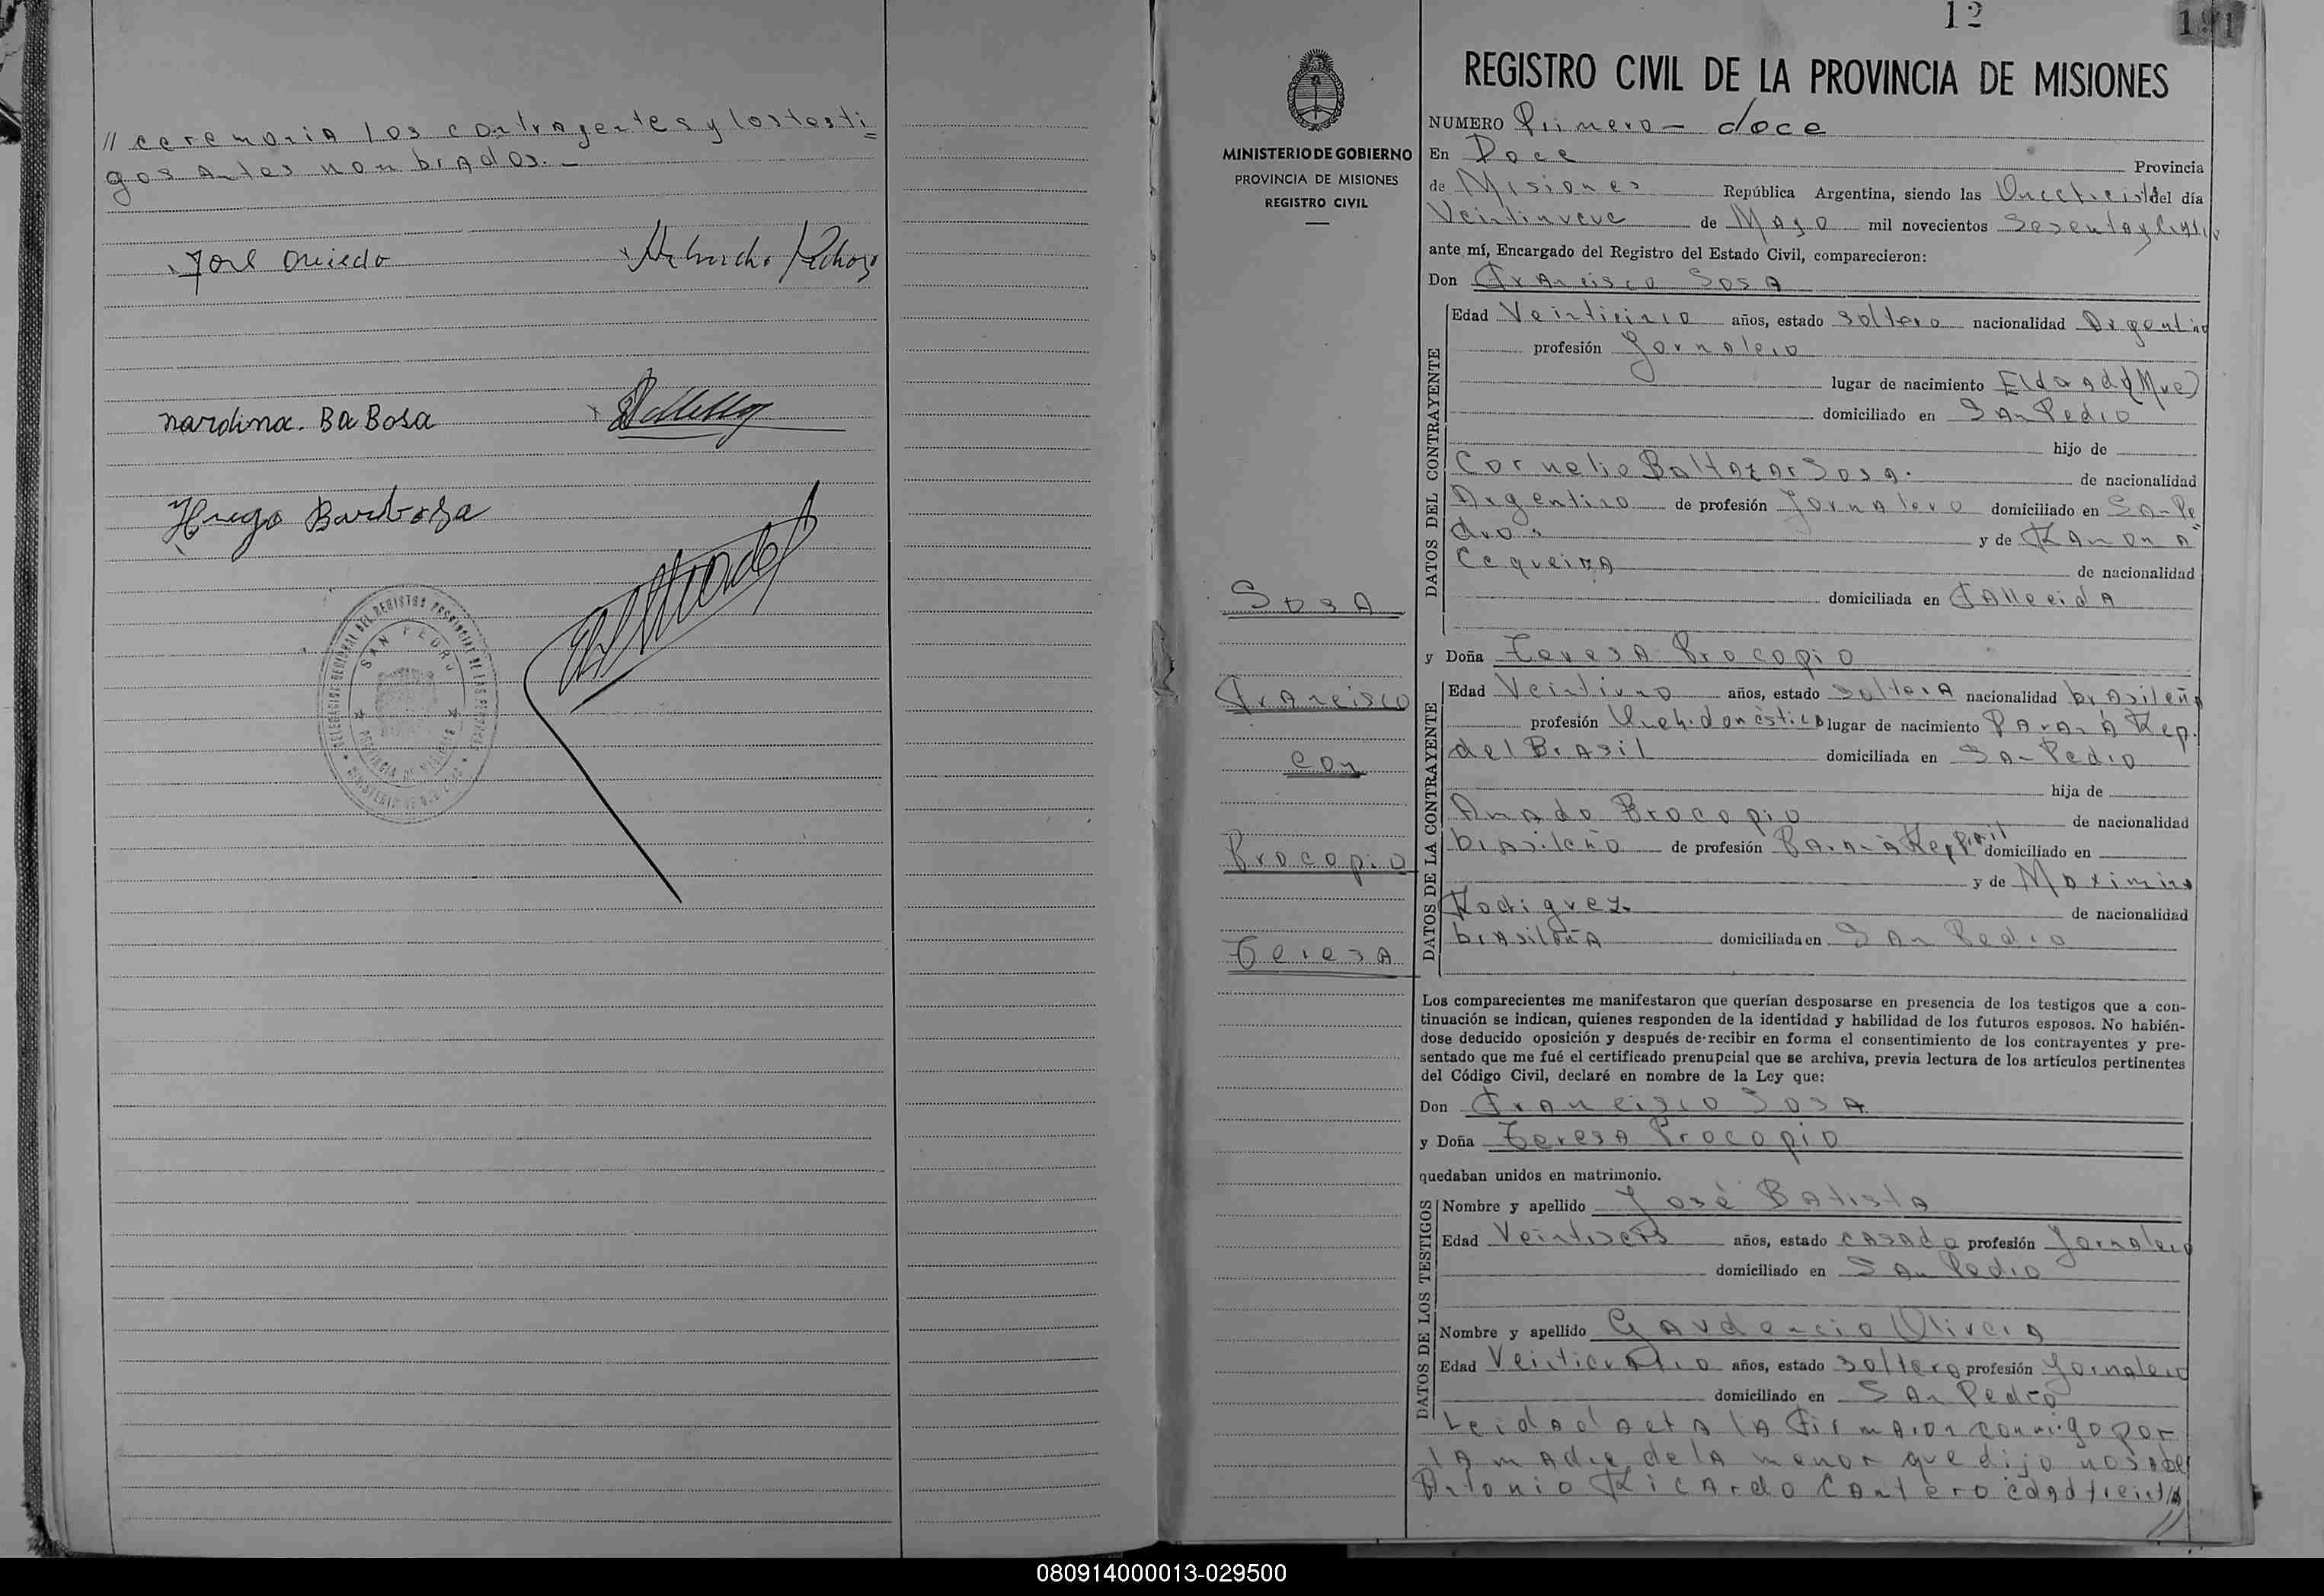 // ceremonia los contrayentes y los testi=
gos antes nombrados.-
José Oviedo
nardina. Ba Bosa
Hugo Barbosa
SAN PEDRO
12
191
REGISTRO CIVIL DE LA PROVINCIA DE MISIONES
MINISTERIO DE GOBIERNO
PROVINCIA DE MISIONES
REGISTRO CIVIL
Sosa
Francisco
con
Procopio
Teresa
NUMERO Primero - doce
En Doce Provincia
de Misiones República Argentina, siendo las del día
Veintinueve de Mayo mil novecientos Sesenta y
ante mí, Encargado del Registro del Estado Civil, comparecieron:
Don Francisco Sosa
DATOS DEL CONTRAYENTE
Edad Veinticinco años, estado soltero nacionalidad Argentino
profesión Jornalero
lugar de nacimiento Eldorado
domiciliado en San Pedro
hijo de
Cornelio Baltazar Sosa. de nacionalidad
Argentino de profesión Jornalero domiciliado en San Pe
dro. y de Ramona
Cequeira de nacionalidad
domiciliada en Fallecida
y Doña Teresa Procopio
DATOS DE LA CONTRAYENTE
Edad Veintiuno años, estado soltera nacionalidad brasileña
profesión lugar de nacimiento Paraná Rep.
del Brasil domiciliada en San Pedro
hija de
Amado Procopio de nacionalidad
brasileño de profesión Paraná Rep. domiciliado en
y de Maximina
Rodriguez de nacionalidad
brasileña domiciliada en San Pedro
Los comparecientes me manifestaron que querían desposarse en presencia de los testigos que a con-
tinuación se indican, quienes responden de la identidad y habilidad de los futuros esposos. No habién-
dose deducido oposición y después de recibir en forma el consentimiento de los contrayentes y pre-
sentado que me fué el certificado prenupcial que se archiva, previa lectura de los artículos pertinentes
del Código Civil, declaré en nombre de la Ley que:
Don Francisco Sosa
y Doña Teresa Procopio
quedaban unidos en matrimonio.
DATOS DE LOS TESTIGOS
Nombre y apellido José Batista
Edad Veintiseis años, estado casado profesión Jornalero
domiciliado en San Pedro
Nombre y apellido Gaudencio Olivera
Edad Veinticuatro años, estado soltero profesión Jornalero
domiciliado en San Pedro
Leida el acta la firmaron conmigo por
la madre de la menor que dijo no saber
Antonio Ricardo Cantero edad treinta
//
080914000013-029500